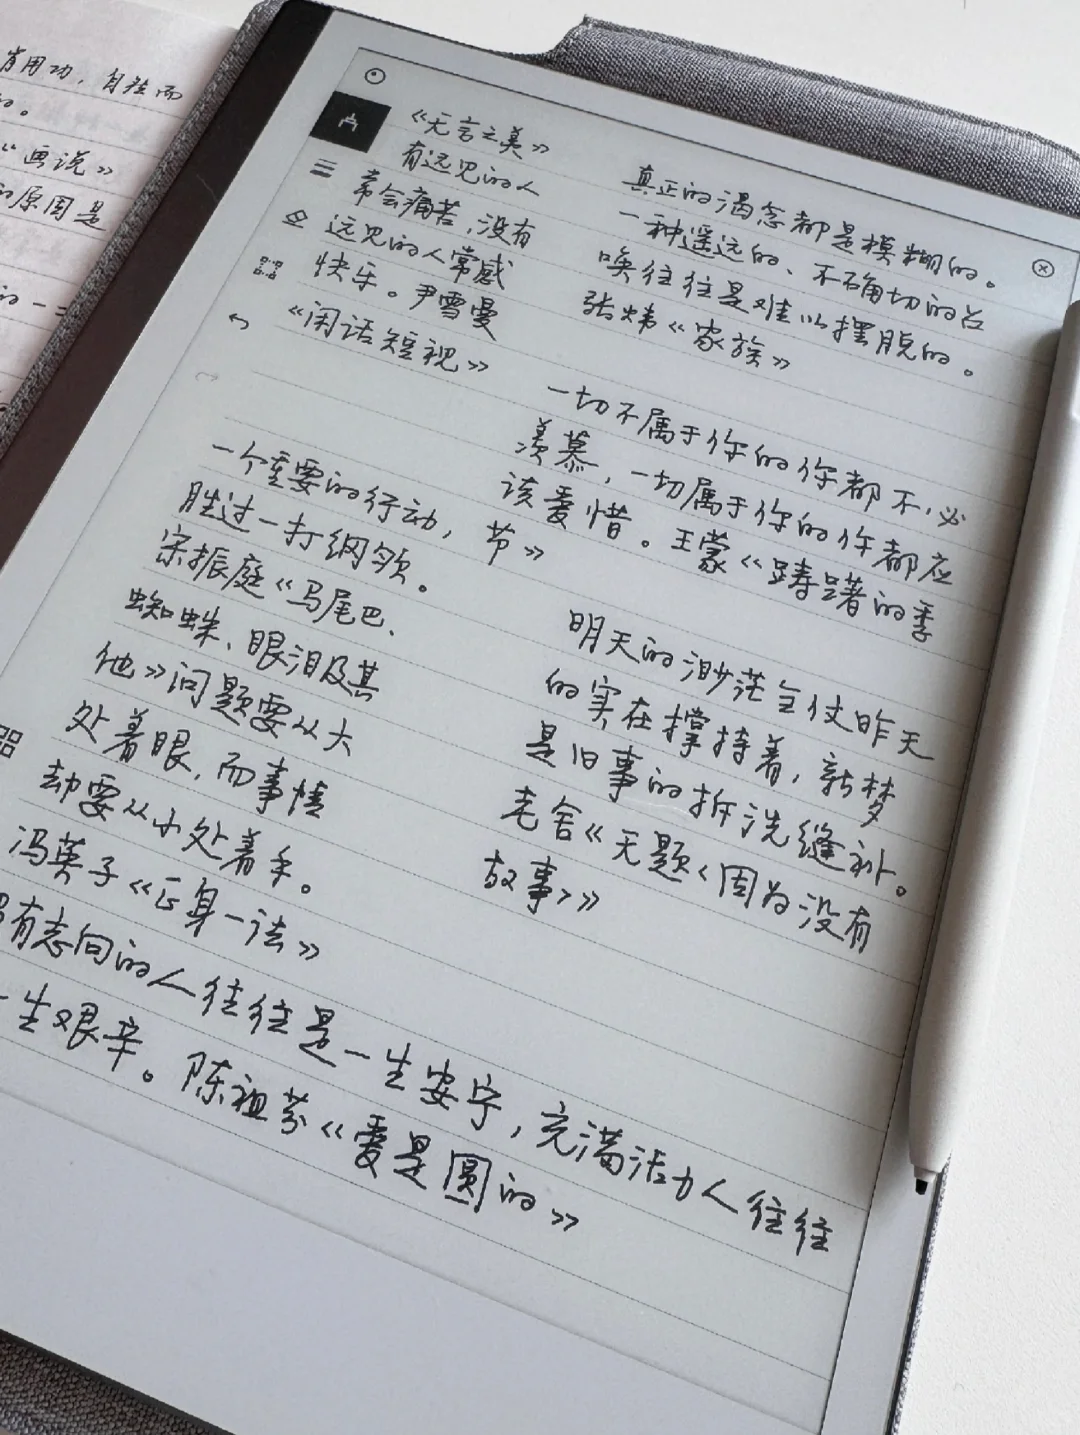 肯用功，自然而
“画说》
的原因是
的一
《无言之美》
有远见的人
常会痛苦，没有
远见的人常感
快乐。尹雪曼
《闲话短视》
一个重要的行动，
胜过一打纲领。
宋振庭《马尾巴、
蜘蛛、眼泪及其
他》问题要从大
处着眼，而事情
却要从小处着手。
冯英子《正身一法》
有志向的人往往是一生安宁，充满活力人往往
一生艰辛。陈祖芬《爱是圆的》
真正的渴念都是模糊的。
一种遥远的、不确切的召
唤往往是难以摆脱的。
张炜《家族》
一切不属于你的你都不必
羡慕，一切属于你的你都应
该爱惜。王蒙《踌躇的季
节》
明天的渺茫全仗昨天
的实在撑持着，新梦
是旧事的拆洗缝补。
老舍《无题<因为没有
故事>》